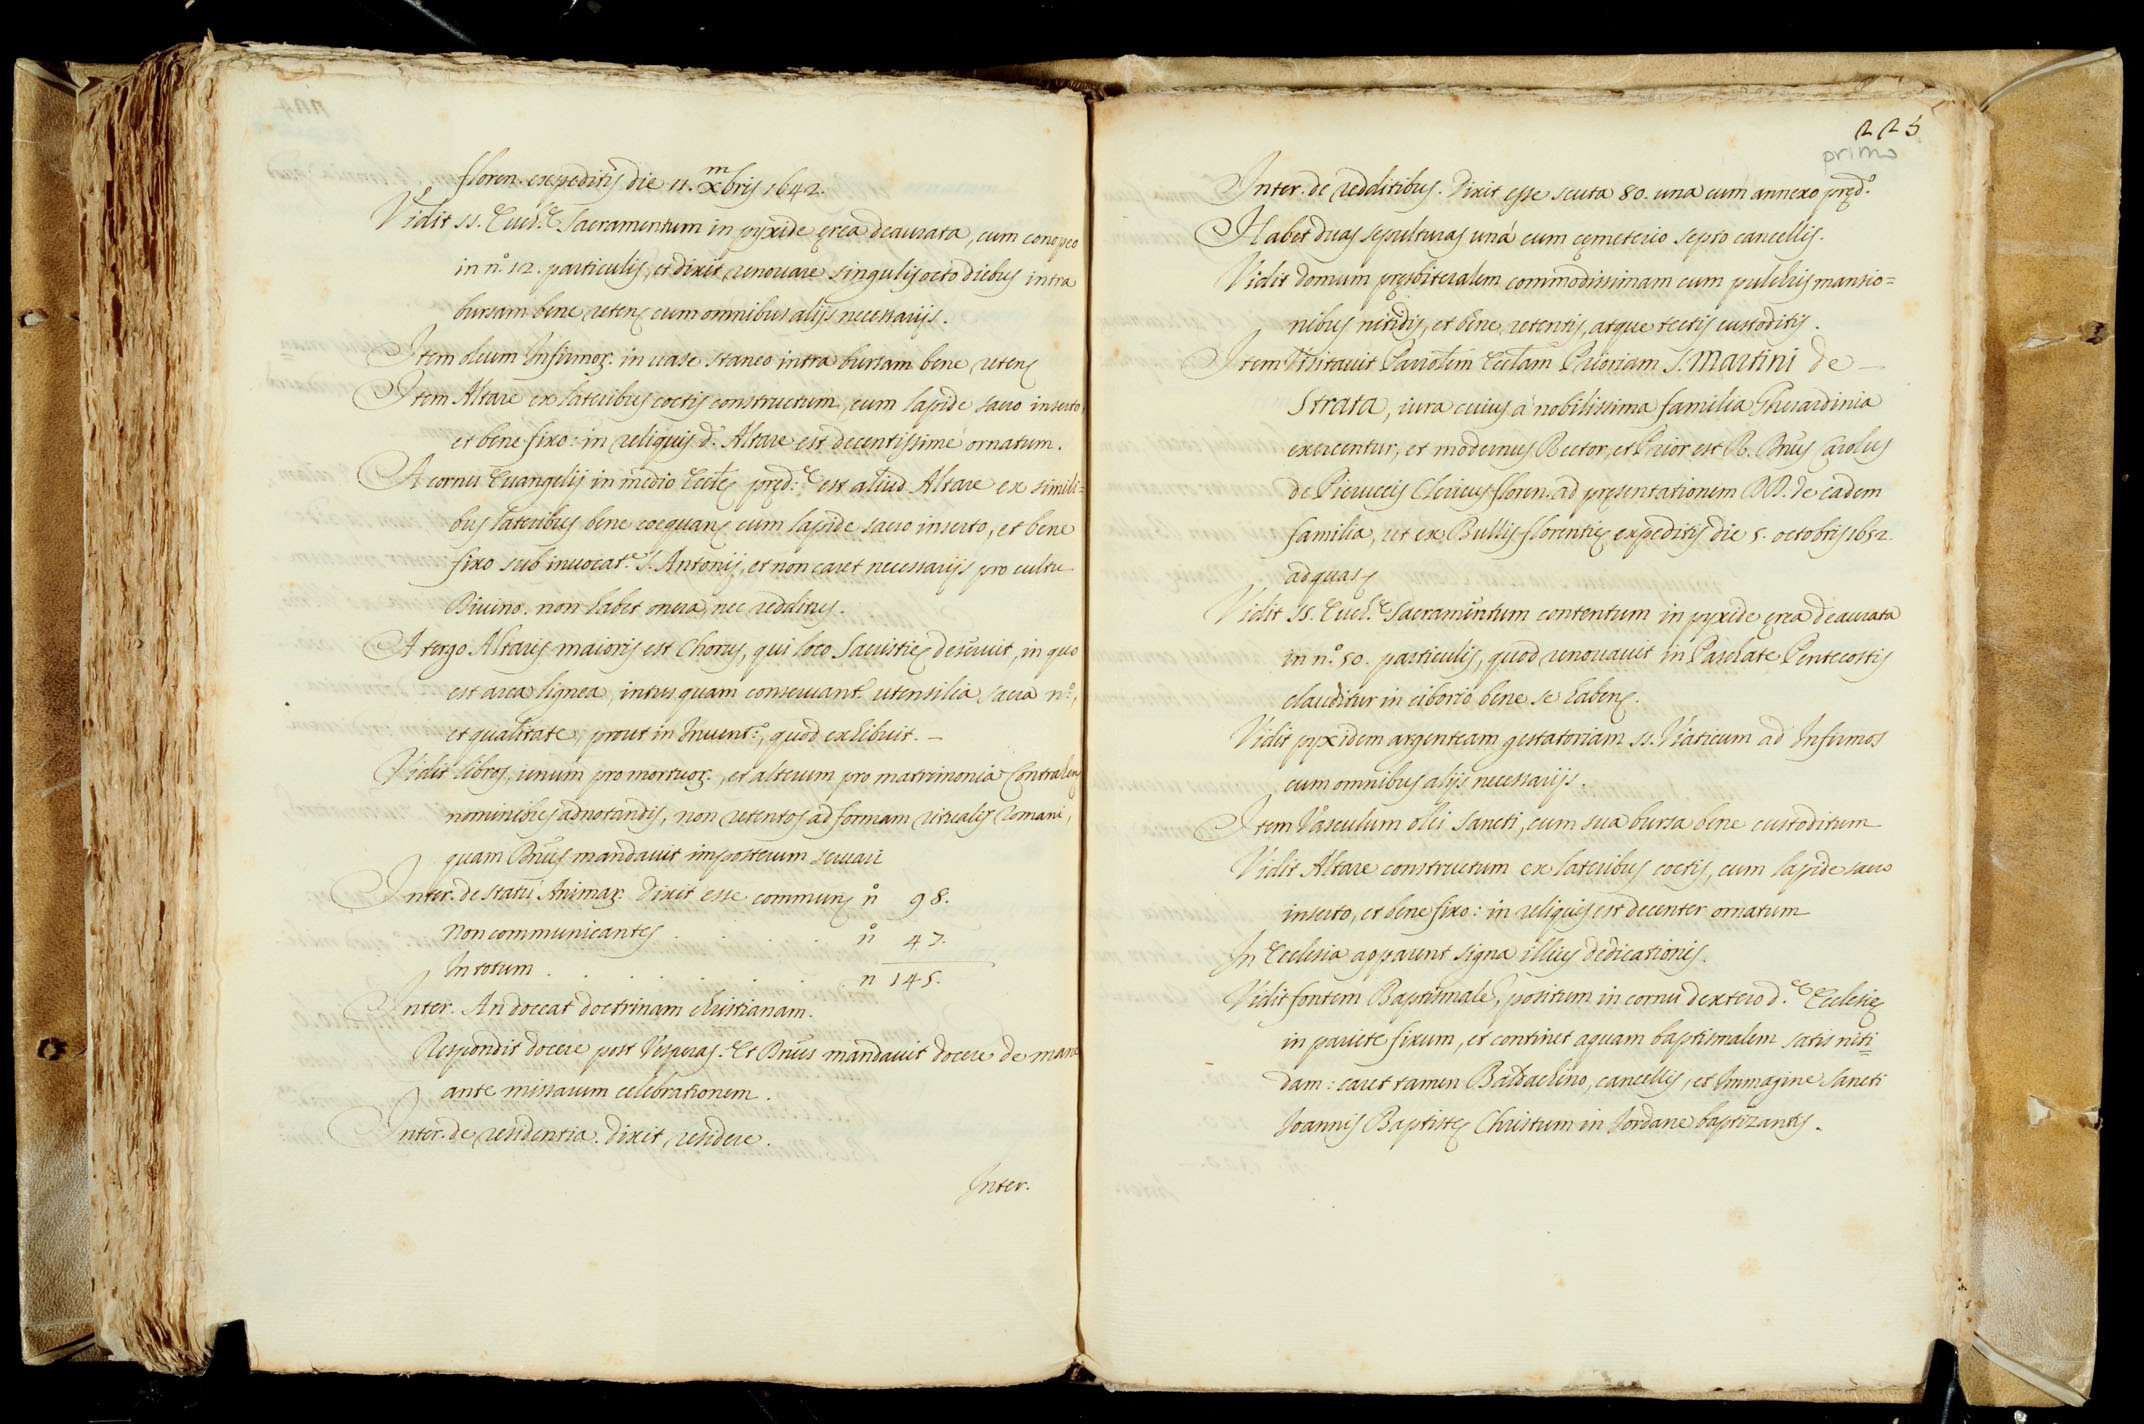 floren. expeditis die 11. Xmbris 1642.
Vidit SS. Euch.e Sacramentum in pyxide ęrea deaurata, cum conopeo
in n.o 12. particulis, et dixit renouare singulis octo diebus intra
bursam bene reten; cum omnibus alijs necessarijs.
Item oleum Infirmor. in uase staneo intra bursam bene reten;
Item Altare ex lateribus coctis constructum, cum lapide sacro inserto,
et bene fixo: in reliquis d.o Altare est decentissimé ornatum.
A cornu Euangelij in medio Eccle; pręd:e est aliud Altare ex simili=
bus lateribus bene coequan; cum lapide sacro inserto, et bene
fixo sub inuocat.e S. Antonij, et non caret necessarijs pro cultu
Diuino. non habet onera, nec redditus.
A tergo Altaris maioris est Chorus, qui loco Sacristię deseruit, in quo
est arca lignea, intus quam conseruant.r utensilia sacra n.o,
et qualitate, prout in Inuent.o, quod exhibuit. –
Vidit libros, unum pro mortuor., et alterum pro matrimonia Contrahen;
nominibus adnotandis, non retentos ad formam ritualis Romani,
quam Dnus mandauit imposterum seruari
Inter. de statu Animar. dixit esse commun; n.o 98.
Non communicantes . . . . . n.o 47.
In totum . . . . . . . n 145.
Inter. An doceat doctrinam christianam.
Respondit docere post Vesperas. Et Dnus mandauit docere de mane
ante missarum celebrationem.
Inter. de residentia. dixit residere.
Inter.
225
primo
Inter. de redditibus. Dixit esse scuta 80. una cum annexo pręd.o
Habet duas sepulturas unà cum cęmeterio septo cancellis.
Vidit domum pręsbiteralem commodissimam cum pulchris mansio=
nibus nitidis, et bene retentis, atque tectis custoditis.
Item Visitauit Parrolem Ecclam Prioriam S. Martini de –
Strata, iura cuius à nobilissima familia Gherardinia
exercentur, et modernus Rector, et Prior est R. Dnus Carolus
de Pieruccis Clericus floren. ad pręsentationem DD. de eadem
familia, ut ex Bullis florentię expeditis die 5. octobris 1652.
ad quas;
Vidit SS. Euch.e Sacramentum contentum in pyxide ęrea deaurata
in n.o 50. particulis, quod renouauit in Pascate Pentecostis
clauditur in ciborio bene se haben;.
Vidit pyxidem argenteam gestatoriam SS. Viaticum ad Infirmos
cum omnibus alijs necessarijs.
Item Vasculum olei sancti, cum sua bursa bene custoditum
Vidit Altare constructum ex lateribus coctis, cum lapide sacro
inserto, et bene fixo: in reliquis est decenter ornatum
In Ecclesia apparent signa illius dedicationis.
Vidit fontem Baptismale, positum in cornu dextero d.e Ecclesię
in pariete fixum, et continet aquam baptismalem satis niti=
dam: caret tamen Baldachino, cancellis, et Immagine sancti
Ioannis Baptistę Christum in Iordane baptizantis.